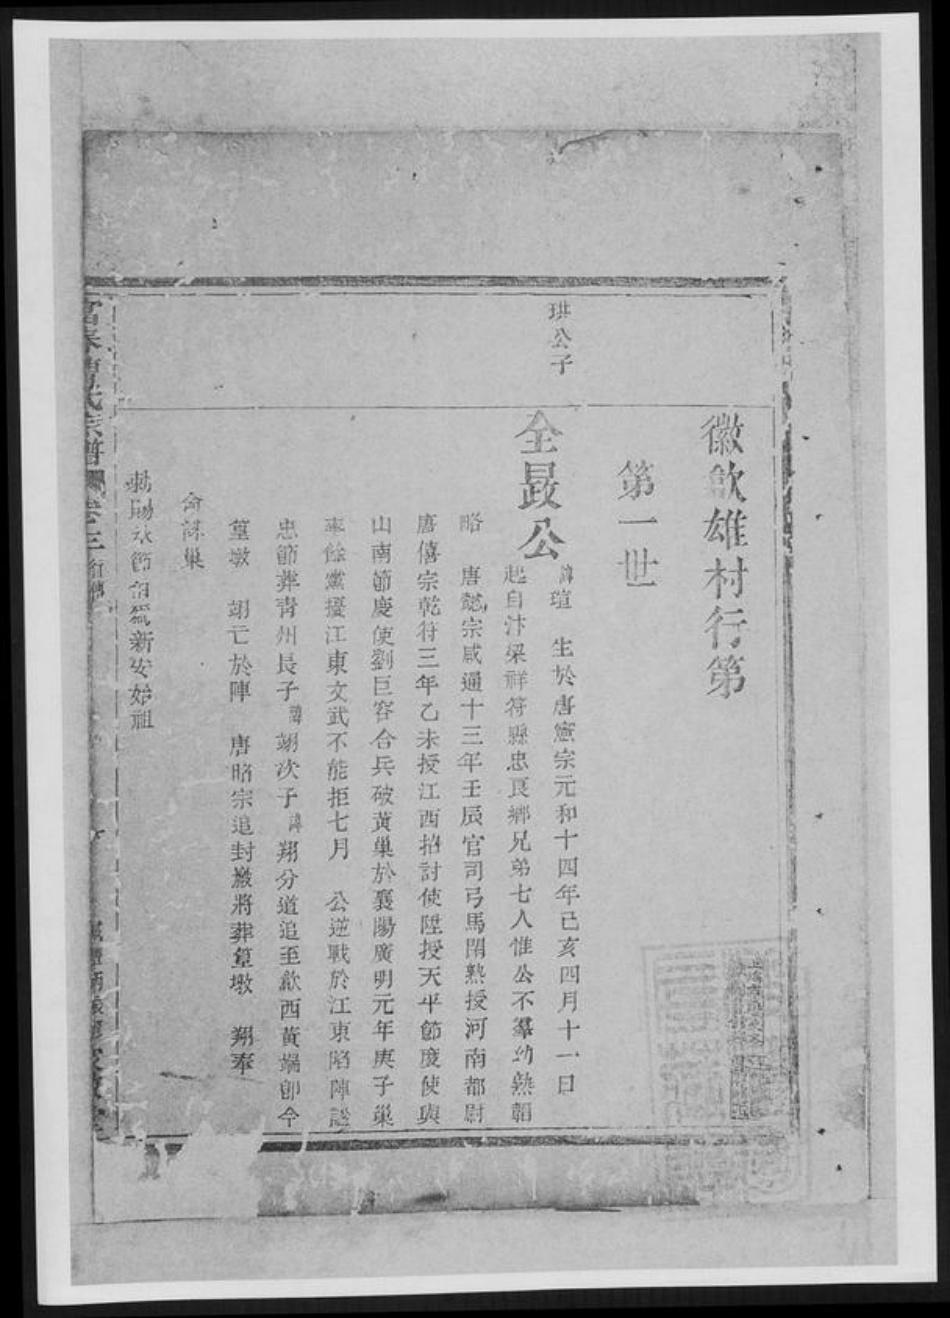 徽歙雄村行第
第一世
珙公子
全晸公
諱瑄　生於唐憲宗元和十四年己亥四月十一日
起自汴梁祥符縣忠良鄉兄弟七人惟公不羣幼熟韜
略　唐懿宗咸通十三年壬辰官司弓馬閑熟授河南都尉
唐僖宗乾符三年乙未授江西招討使陞授天平節度使與
山南節慶使劉巨容合兵破黃巢於襄陽廣明元年庚子巢
率餘黨擾江東文武不能拒七月　公逆戰於江東陷陣諡
忠節葬青州長子諱翊次子諱翔分道追至歙西黃墩卽今
篁墩　翊亡於陣　唐昭宗追封巖將葬篁墩　翔奉
命誅巢
勅賜　節　爲新安始祖
富春曹氏宗譜　卷三